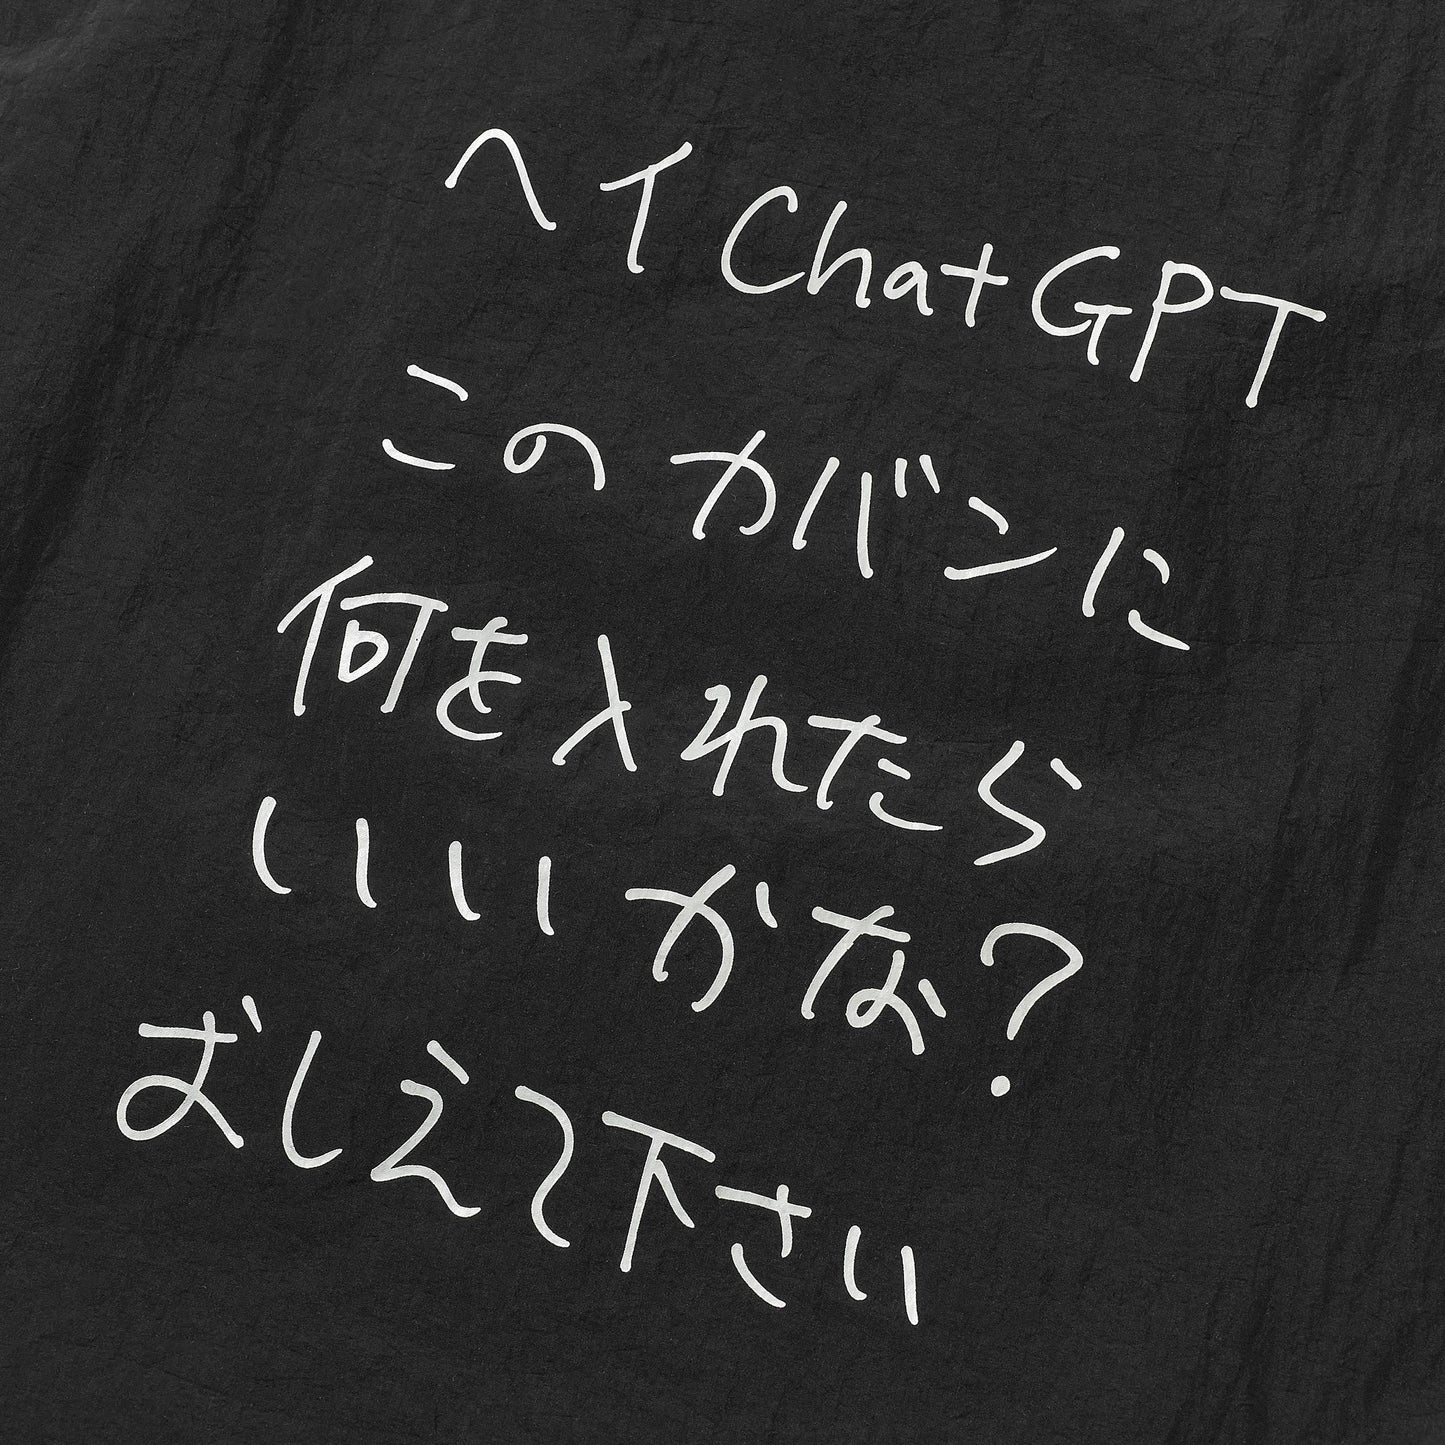 ヘイ ChatGPT
この カバンに
何を入れたら
いいいかな?
おしえて下さい